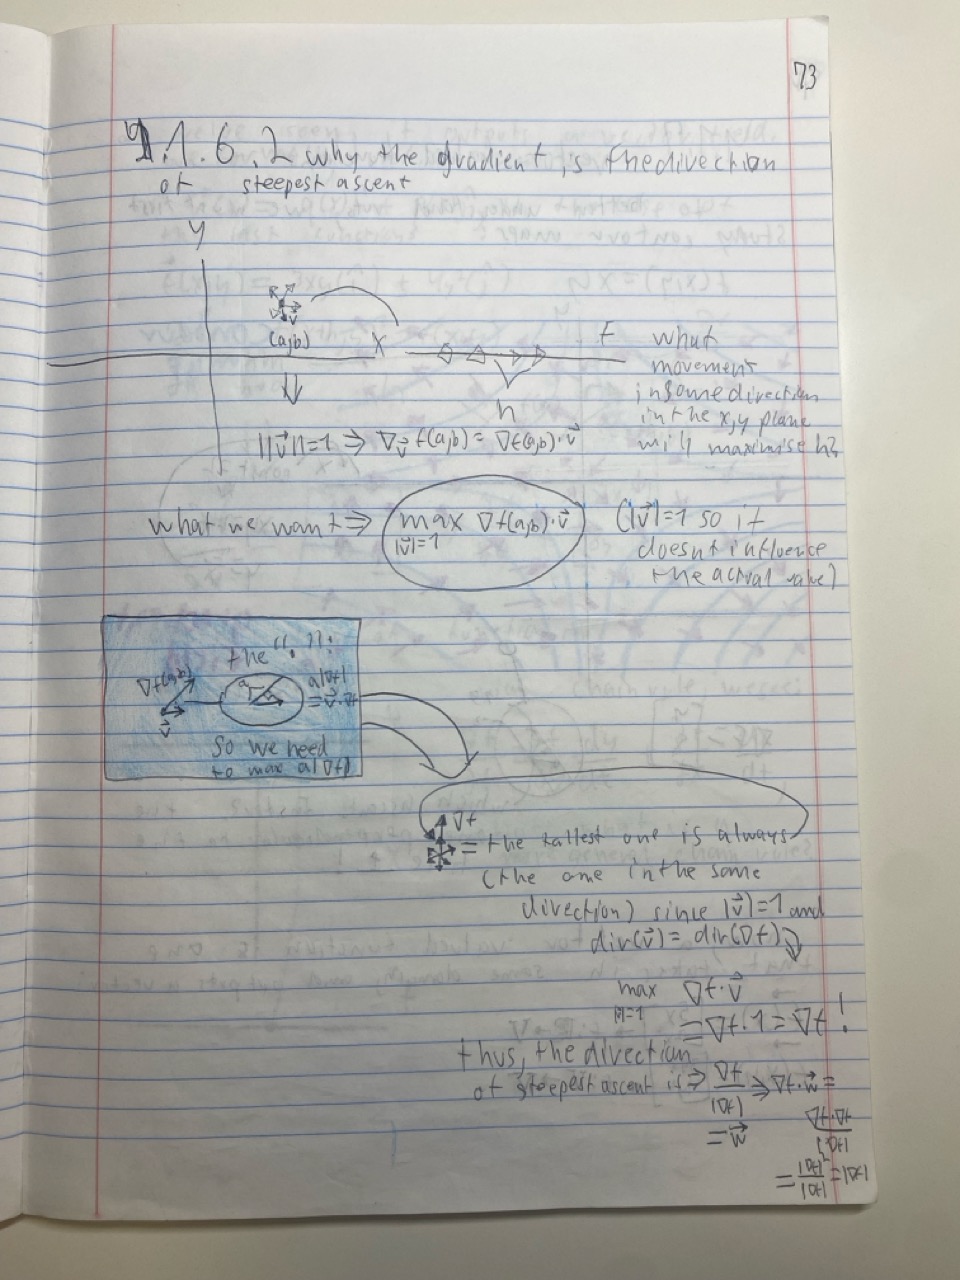 73
1.6.2 why the gradient is the direction
of steepest ascent
y
(a,b)
x
f
h
what
movement
in some direction
in the x,y plane
will maximise h?
||v⃗||=1 ⇒ ∇v⃗ f(a,b) = ∇f(a,b)·v⃗
what we want ⇒ max ∇f(a,b)·v⃗
|v⃗|=1
(|v⃗|=1 so it
doesnt influence
the actual value)
the "·":
∇f(a,b)
v⃗
a
a|∇f|
= v⃗·∇f
so we need
to max a|∇f|
∇f
= the tallest one is always
(the one in the same
direction) since |v⃗|=1 and
dir(v⃗) = dir(∇f)
max ∇f·v⃗
=1
= ∇f·1 = ∇f!
thus, the direction
of steepest ascent is ⇒ ∇f/|∇f| ⇒ ∇f·w⃗ =
= w⃗
∇f·∇f/|∇f|
= |∇f|²/|∇f| = |∇f|